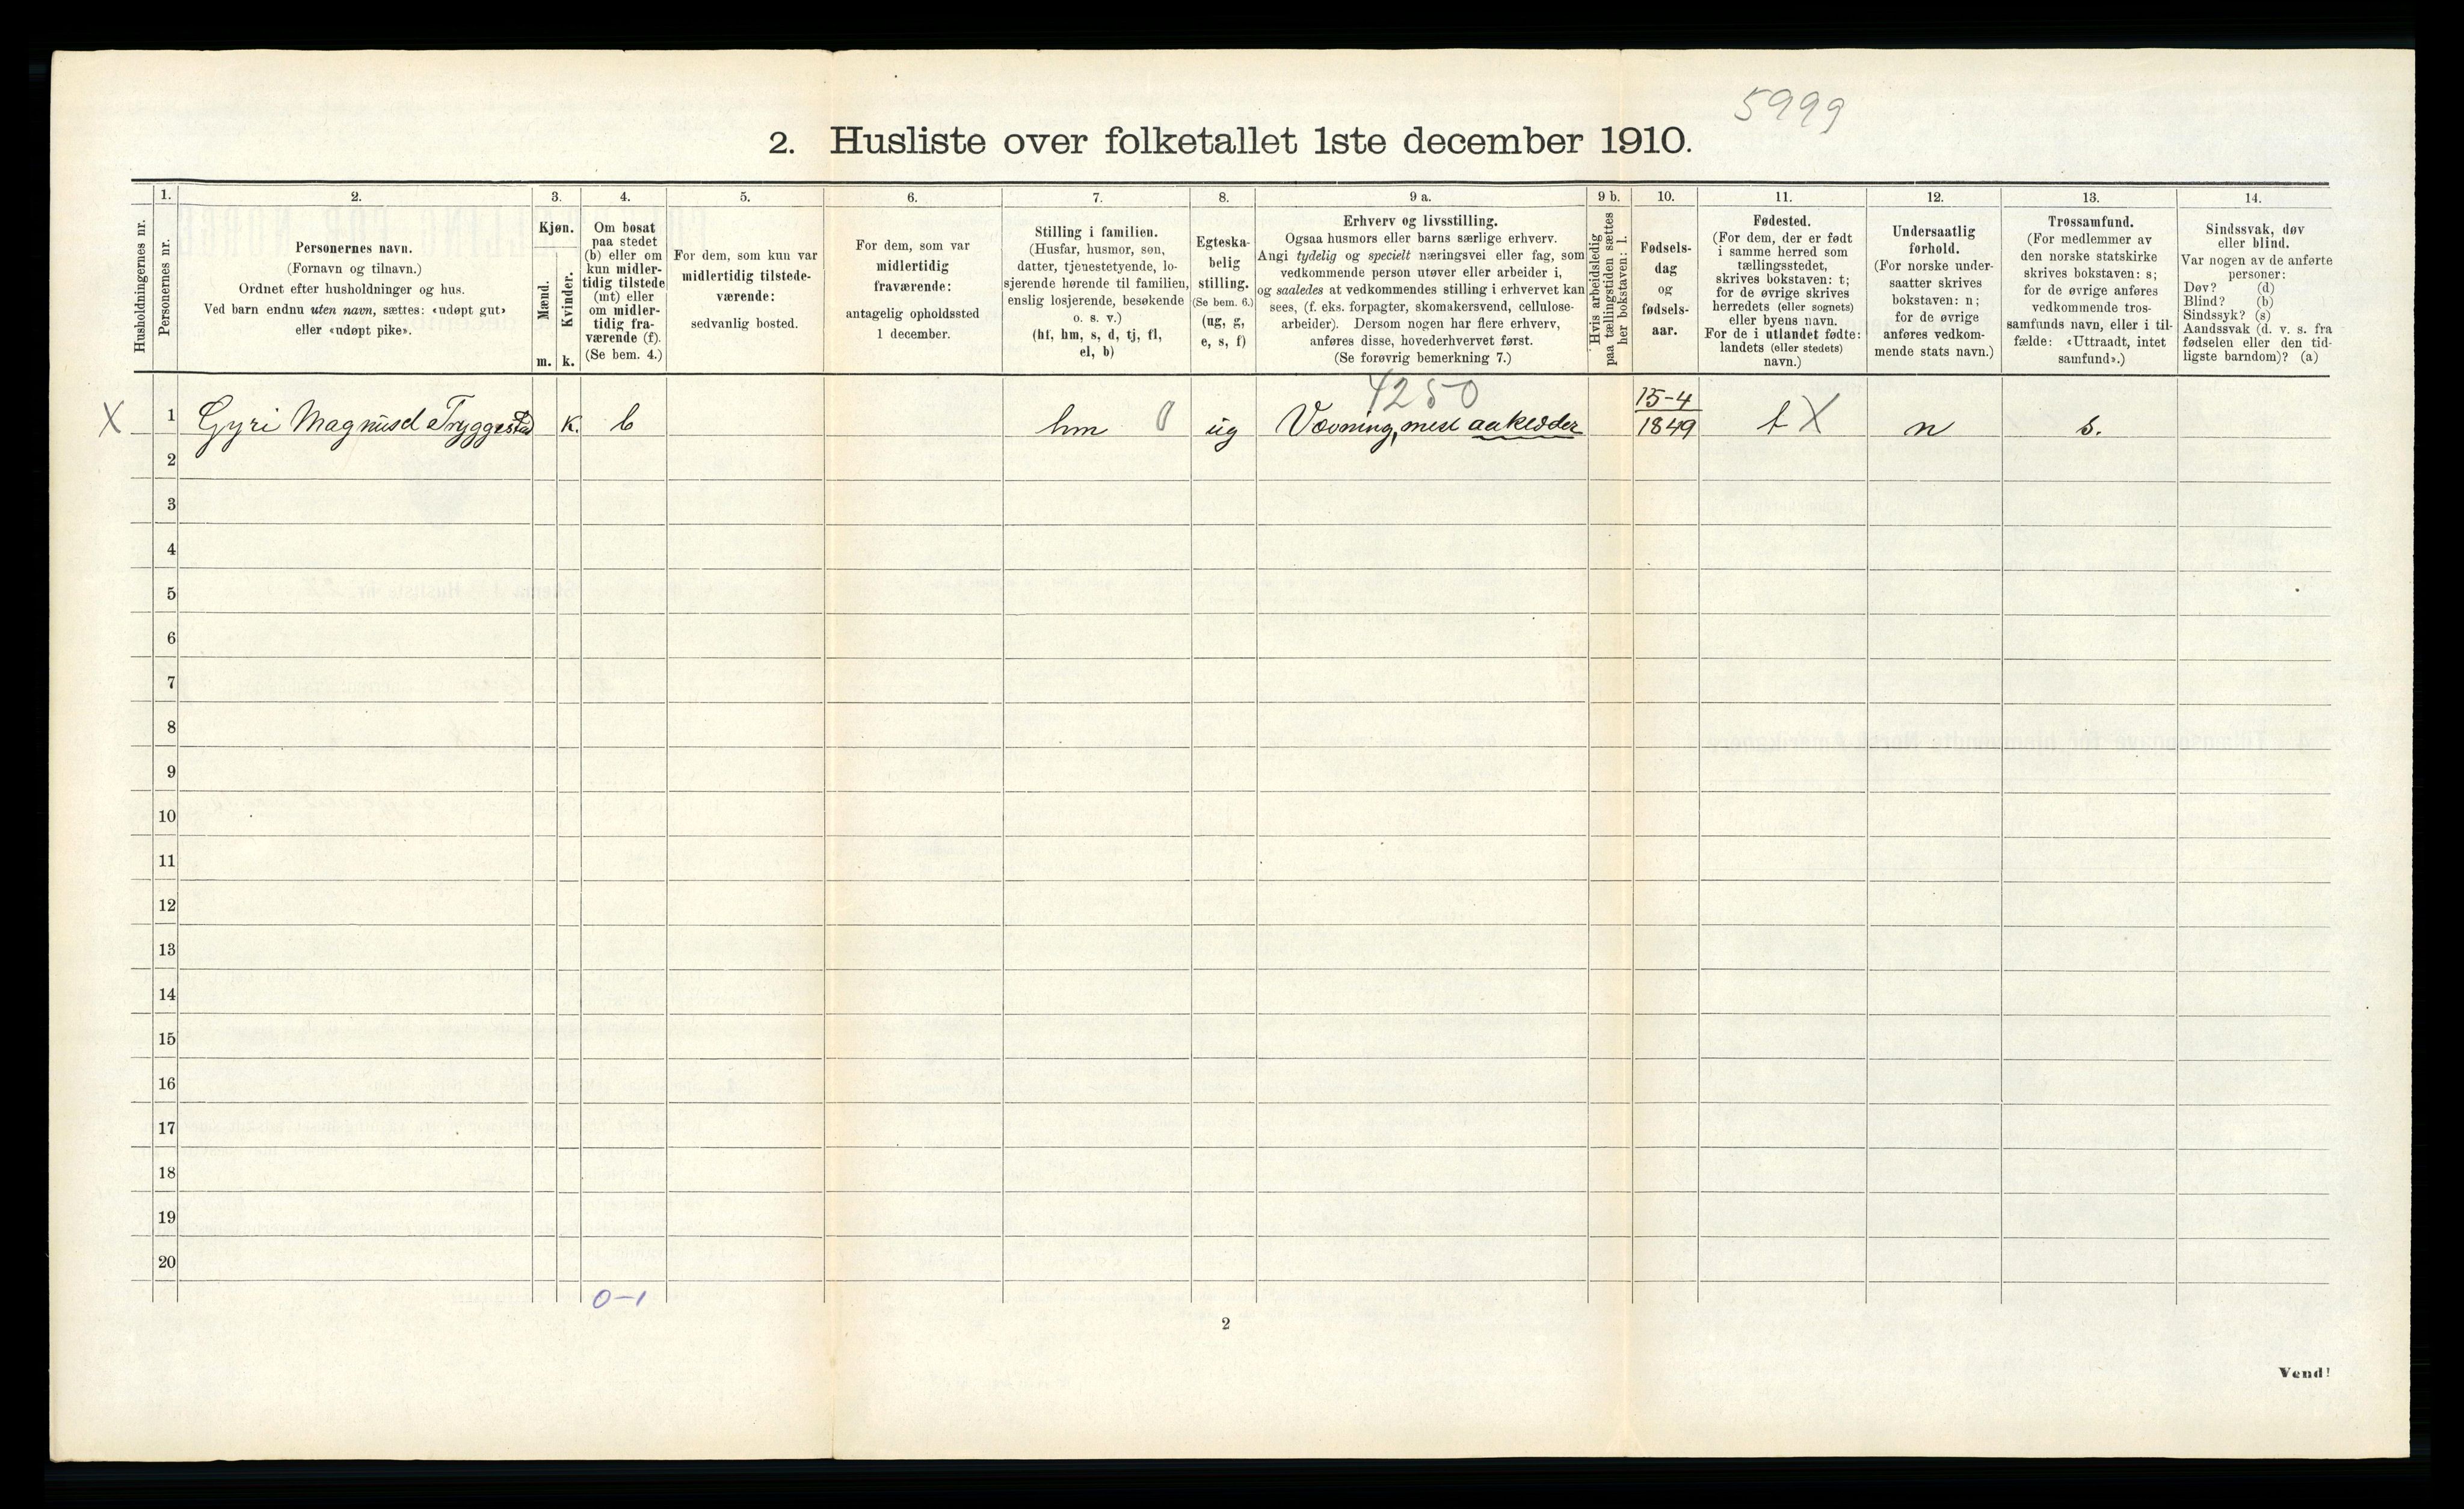 5999
2. Husliste over folketallet 1ste december 1910.
Husholdningernes nr.
1.
Personernes nr.
2.
Personernes navn.
(Fornavn og tilnavn.)
Ordnet efter husholdninger og hus.
Ved barn endnu uten navn, sættes: «udøpt gut»
eller «udøpt pike».
3.
Kjøn.
Mænd.
m.
Kvinder.
k.
4.
Om bosat
paa stedet
(b) eller om
kun midler-
tidig tilstede
(mt) eller
om midler-
tidig fra-
værende (f).
(Se bem. 4.)
5.
For dem, som kun var
midlertidig tilstede-
værende:
sedvanlig bosted.
6.
For dem, som var
midlertidig
fraværende:
antagelig opholdssted
1 december.
7.
Stilling i familien.
(Husfar, husmor, søn,
datter, tjenestetyende, lo-
sjerende hørende til familien,
enslig losjerende, besøkende
o. s. v.)
(hf, hm, s, d, tj, fl,
el, b)
8.
Egteska-
belig
stilling.
(Se bem. 6.)
(ug, g,
e, s, f)
9 a.
Erhverv og livsstilling.
Ogsaa husmors eller barns særlige erhverv.
Angi tydelig og specielt næringsvei eller fag, som
vedkommende person utøver eller arbeider i,
og saaledes at vedkommendes stilling i erhvervet kan
sees, (f. eks. forpagter, skomakersvend, cellulose-
arbeider). Dersom nogen har flere erhverv,
anføres disse, hovederhvervet først.
(Se forøvrig bemerkning 7.)
9 b.
Hvis arbeidsledig
paa tællingstiden sættes
her bokstaven: l.
10.
Fødsels-
dag
og
fødsels-
aar.
11.
Fødested.
(For dem, der er født
i samme herred som
tællingsstedet,
skrives bokstaven: t;
for de øvrige skrives
herredets (eller sognets)
eller byens navn.
For de i utlandet fødte:
landets (eller stedets)
navn.)
12.
Undersaatlig
forhold.
(For norske under-
saatter skrives
bokstaven: n;
for de øvrige
anføres vedkom-
mende stats navn.)
13.
Trossamfund.
(For medlemmer av
den norske statskirke
skrives bokstaven: s;
for de øvrige anføres
vedkommende tros-
samfunds navn, eller i til-
fælde: «Uttraadt, intet
samfund».)
14.
Sindssvak, døv
eller blind.
Var nogen av de anførte
personer:
Døv? (d)
Blind? (b)
Sindssyk? (s)
Aandssvak (d. v. s. fra
fødselen eller den tid-
ligste barndom)? (a)
4250
15-4
X 1 Gyri Magnusd Tryggestad k. b hm 0 ug Vævning, mest aaklæder 1849 t X n s.
2
3
4
5
6
7
8
9
10
11
12
13
14
15
16
17
18
19
20
0-1
2
Vend!